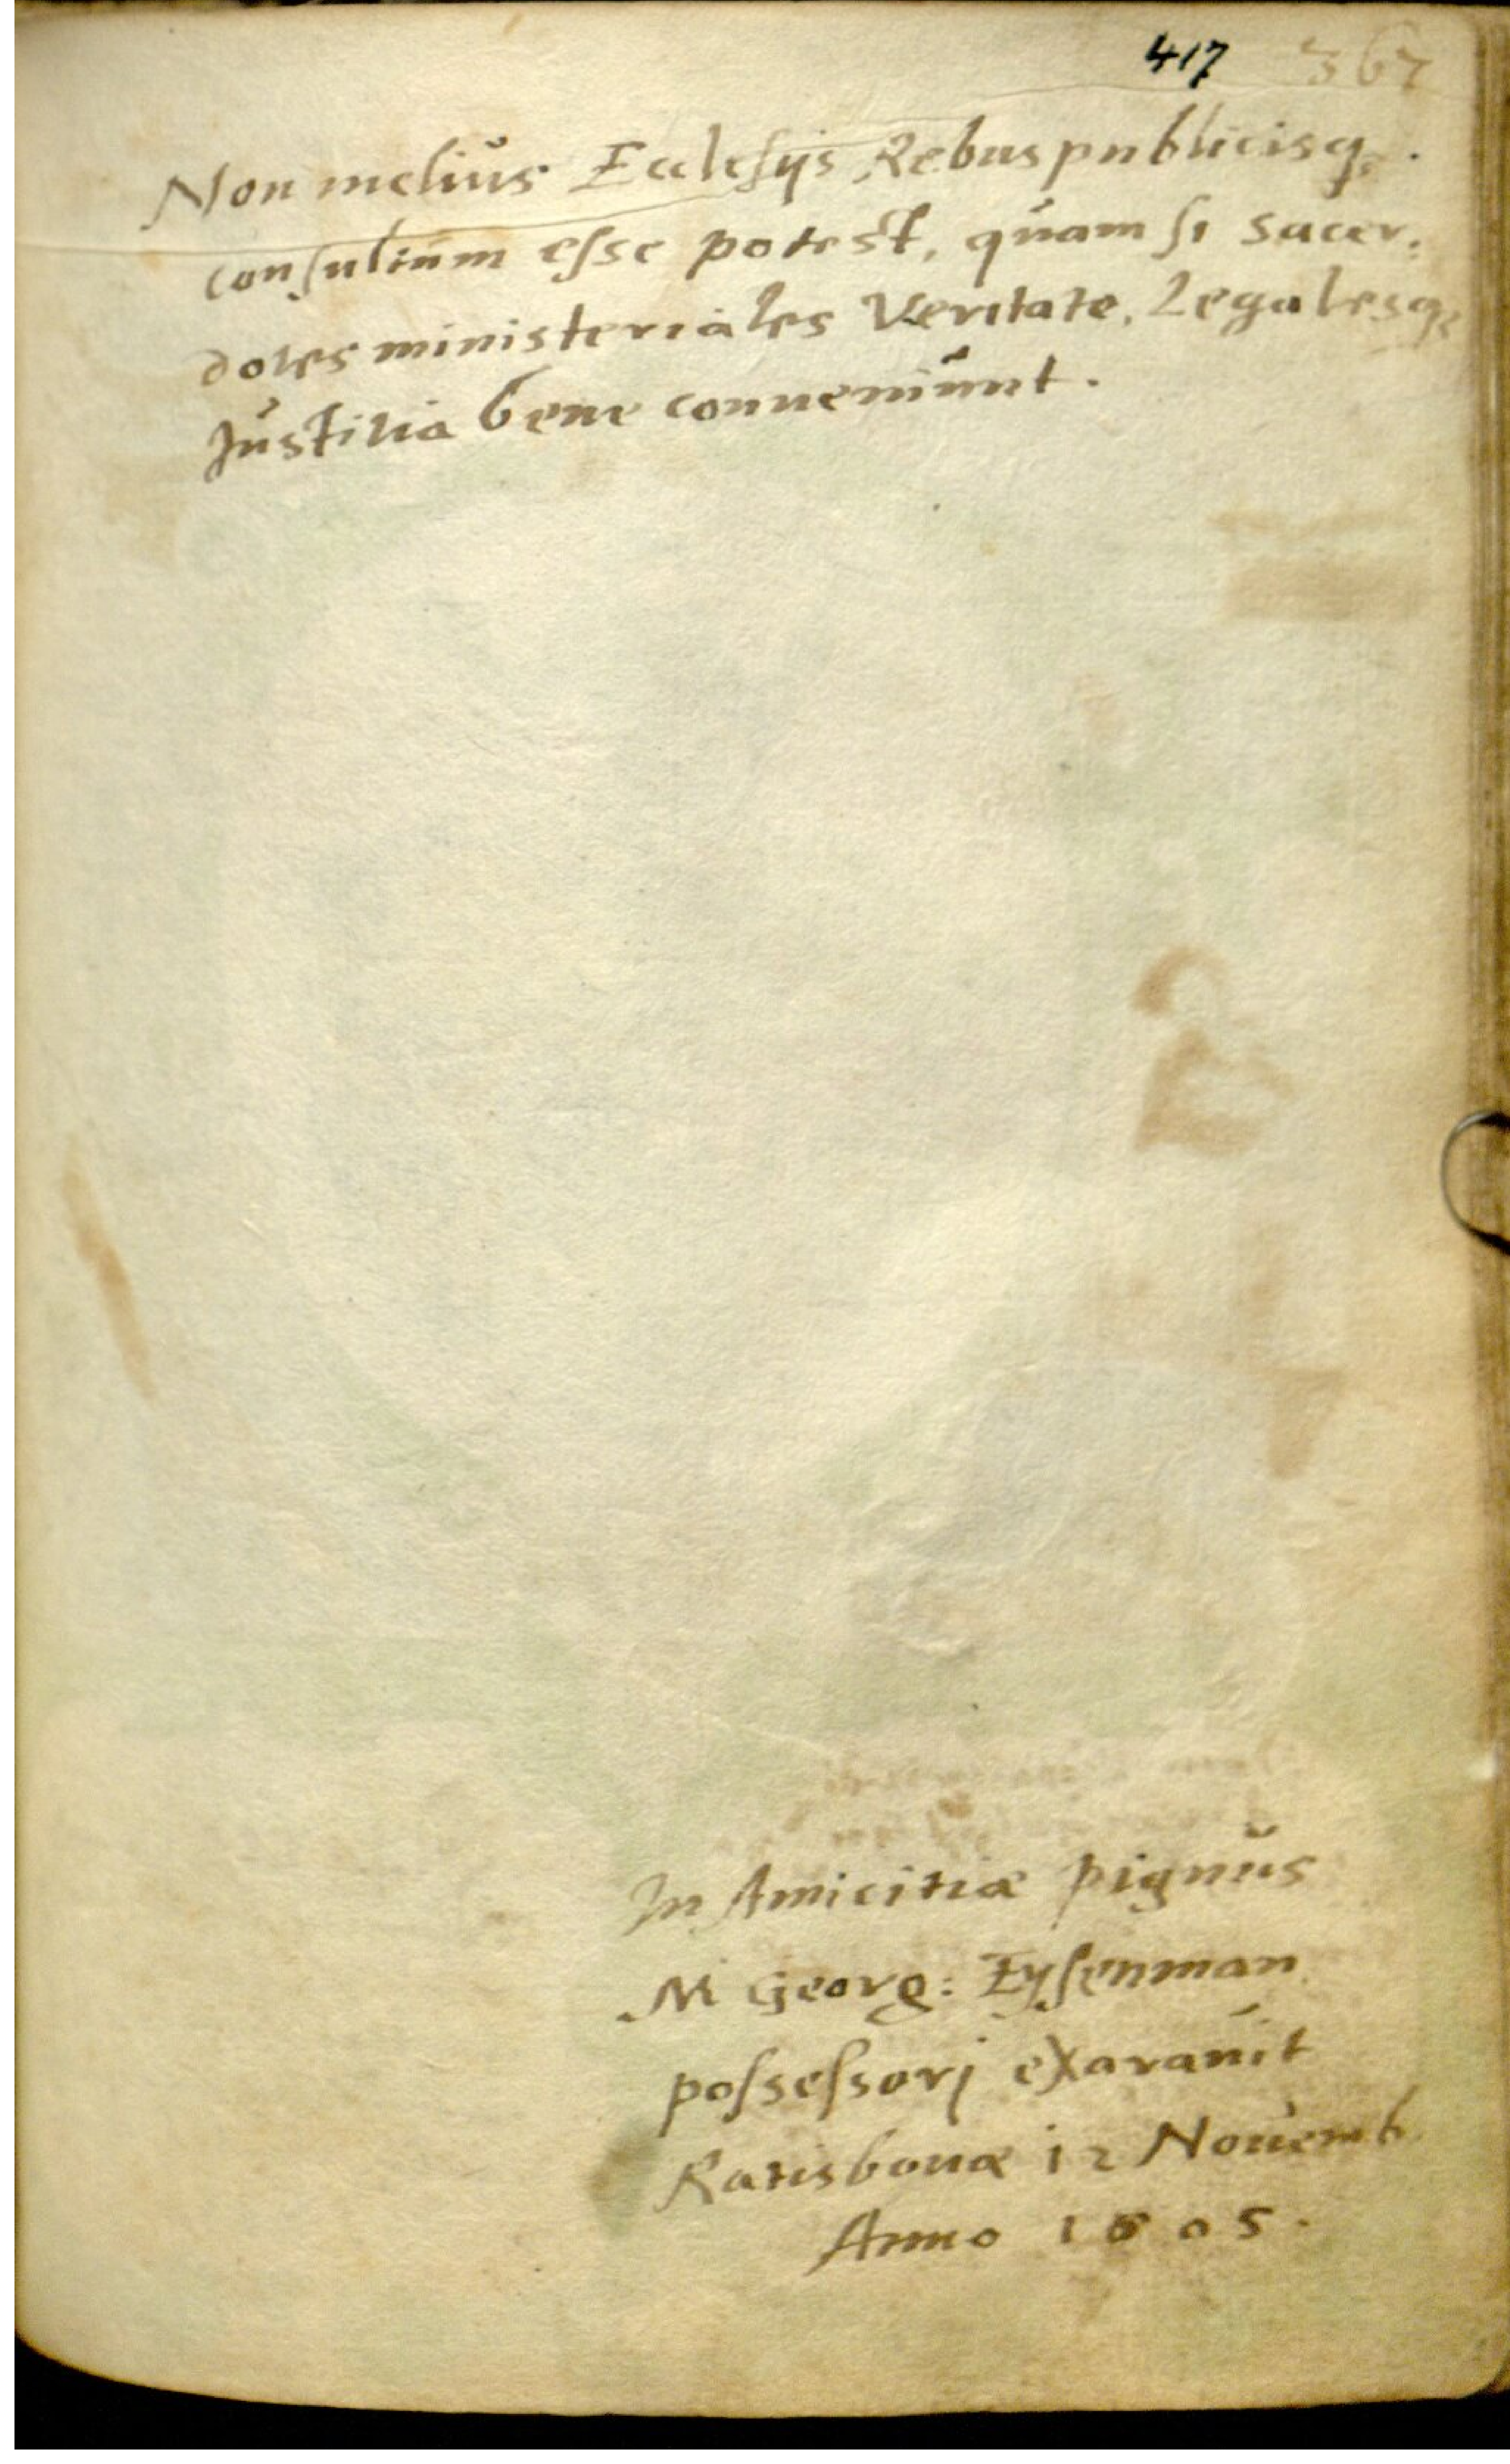 417 367
Non meliùs Ecclesijs Rebuspublicisq₃
consultum esse potest, quàm si sacer:
dotes ministeriales Veritate, Legalesq₃
Justitia bene conueniunt.
In Amicitiæ pignus
M Georg: Eysenman
possessorj exarauit
Ratisbonæ 12 Nouemb
Anno 1605.